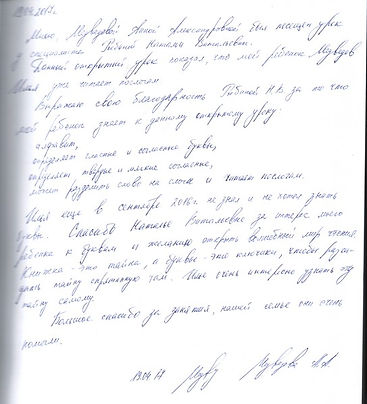 19.04.2017г.
Мною, Медведевой Анной Александровной был посещен урок
у специалиста Рябиной Натальи Витальевны.
Данный открытый урок показал, что мой ребенок, Медведев
Илья уже читает послогам
Выражаю свою благодарность Рябиной Н.В. за то что
мой ребенок знает к данному открытому уроку:
алфавит,
определяет гласные и согласные буквы,
определяет твердые и мягкие согласные,
может разделить слово на слоги и читает послогам.
Илья еще в сентябре 2016г. не знал и не хотел знать
буквы. Спасибо Наталье Витальевне за интерес моего
ребенка к буквам и желанию открыть волшебный мир чтения.
Книжка - это тайна, а буквы - это ключики, чтобы разга-
дать тайну спрятанную там. Илье очень интересно узнать эту
тайну самому.
Большое спасибо за занятия, нашей семье они очень
помогли.
19.04.17 Медведева А.А.